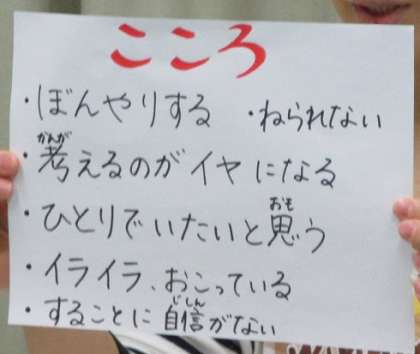 こころ
・ぼんやりする ・ねられない
・考えるのがイヤになる
・ひとりでいたいと思う
・イライラ、おこっている
・することに自信がない